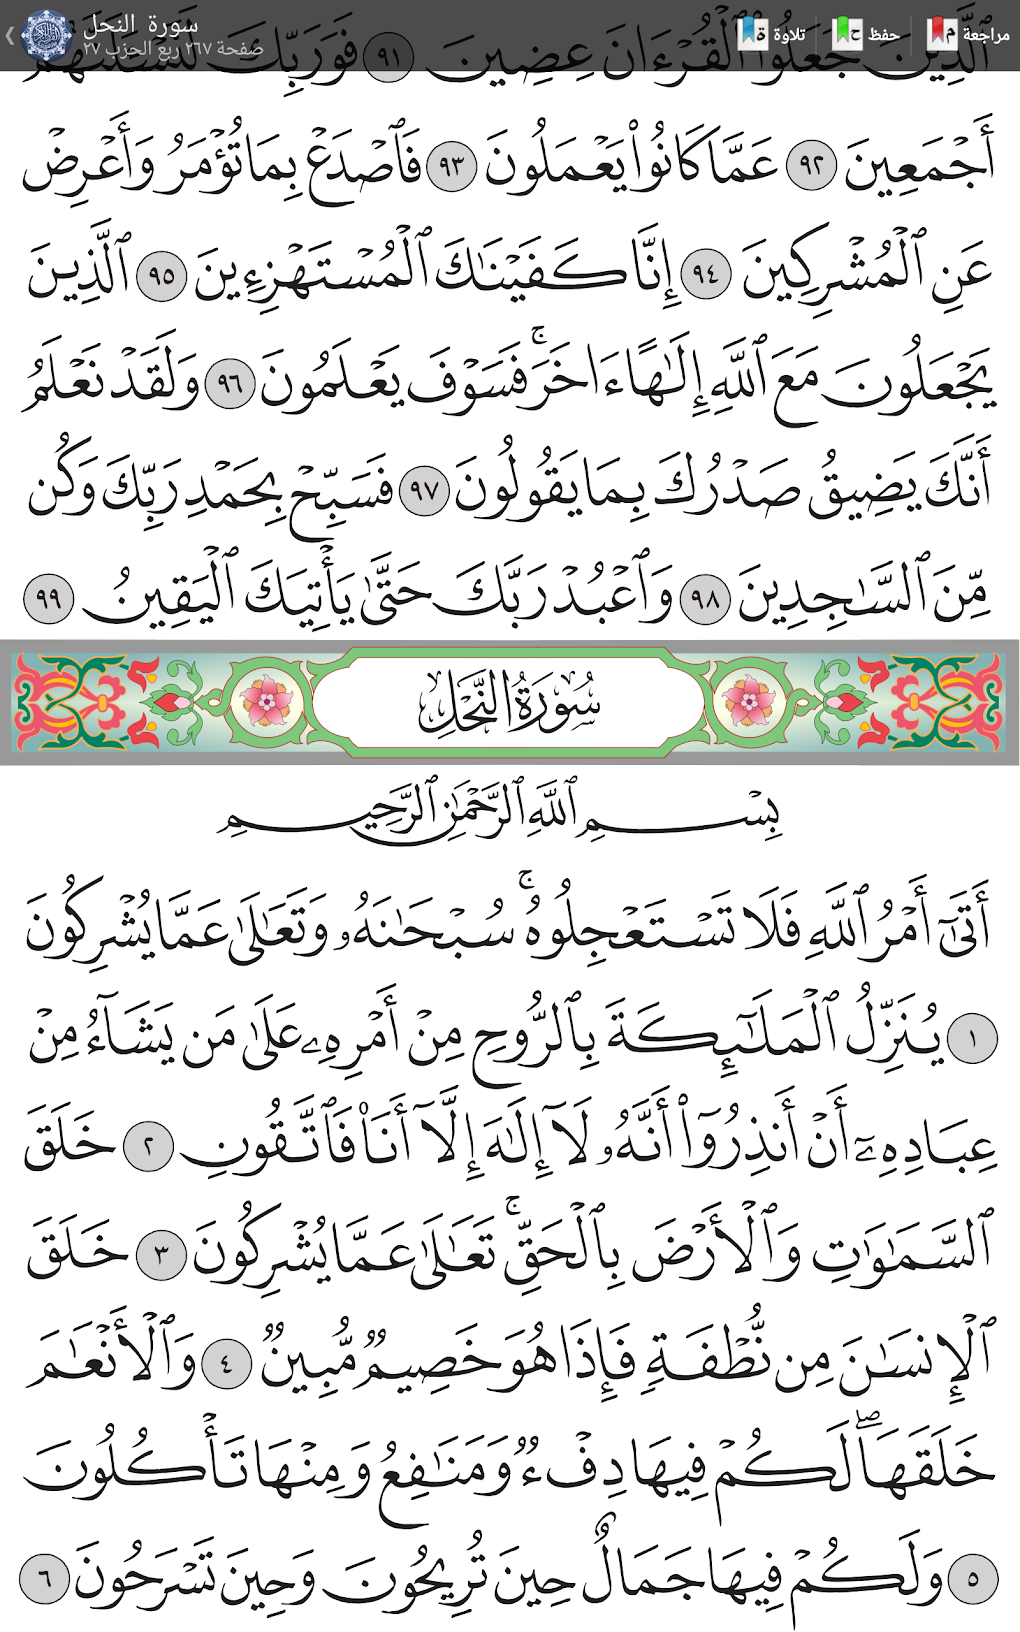 سورة النحل
صفحة ٢٦٧ ربع الحزب ٢٧
مراجعة
حفظ
تلاوة
ٱلَّذِينَ جَعَلُوا۟ ٱلْقُرْءَانَ عِضِينَ ٩١ فَوَرَبِّكَ لَنَسْـَٔلَنَّهُمْ
أَجْمَعِينَ ٩٢ عَمَّا كَانُوا۟ يَعْمَلُونَ ٩٣ فَٱصْدَعْ بِمَا تُؤْمَرُ وَأَعْرِضْ
عَنِ ٱلْمُشْرِكِينَ ٩٤ إِنَّا كَفَيْنَـٰكَ ٱلْمُسْتَهْزِءِينَ ٩٥ ٱلَّذِينَ
يَجْعَلُونَ مَعَ ٱللَّهِ إِلَـٰهًا ءَاخَرَ ۚ فَسَوْفَ يَعْلَمُونَ ٩٦ وَلَقَدْ نَعْلَمُ
أَنَّكَ يَضِيقُ صَدْرُكَ بِمَا يَقُولُونَ ٩٧ فَسَبِّحْ بِحَمْدِ رَبِّكَ وَكُن
مِّنَ ٱلسَّـٰجِدِينَ ٩٨ وَٱعْبُدْ رَبَّكَ حَتَّىٰ يَأْتِيَكَ ٱلْيَقِينُ ٩٩
سُورَةُ النَّحْلِ
بِسْمِ ٱللَّهِ ٱلرَّحْمَـٰنِ ٱلرَّحِيمِ
أَتَىٰٓ أَمْرُ ٱللَّهِ فَلَا تَسْتَعْجِلُوهُ ۚ سُبْحَـٰنَهُۥ وَتَعَـٰلَىٰ عَمَّا يُشْرِكُونَ
١ يُنَزِّلُ ٱلْمَلَـٰٓئِكَةَ بِٱلرُّوحِ مِنْ أَمْرِهِۦ عَلَىٰ مَن يَشَآءُ مِنْ
عِبَادِهِۦٓ أَنْ أَنذِرُوٓا۟ أَنَّهُۥ لَآ إِلَـٰهَ إِلَّآ أَنَا۠ فَٱتَّقُونِ ٢ خَلَقَ
ٱلسَّمَـٰوَٰتِ وَٱلْأَرْضَ بِٱلْحَقِّ ۚ تَعَـٰلَىٰ عَمَّا يُشْرِكُونَ ٣ خَلَقَ
ٱلْإِنسَـٰنَ مِن نُّطْفَةٍ فَإِذَا هُوَ خَصِيمٌ مُّبِينٌ ٤ وَٱلْأَنْعَـٰمَ
خَلَقَهَا ۗ لَكُمْ فِيهَا دِفْءٌ وَمَنَـٰفِعُ وَمِنْهَا تَأْكُلُونَ
٥ وَلَكُمْ فِيهَا جَمَالٌ حِينَ تُرِيحُونَ وَحِينَ تَسْرَحُونَ ٦